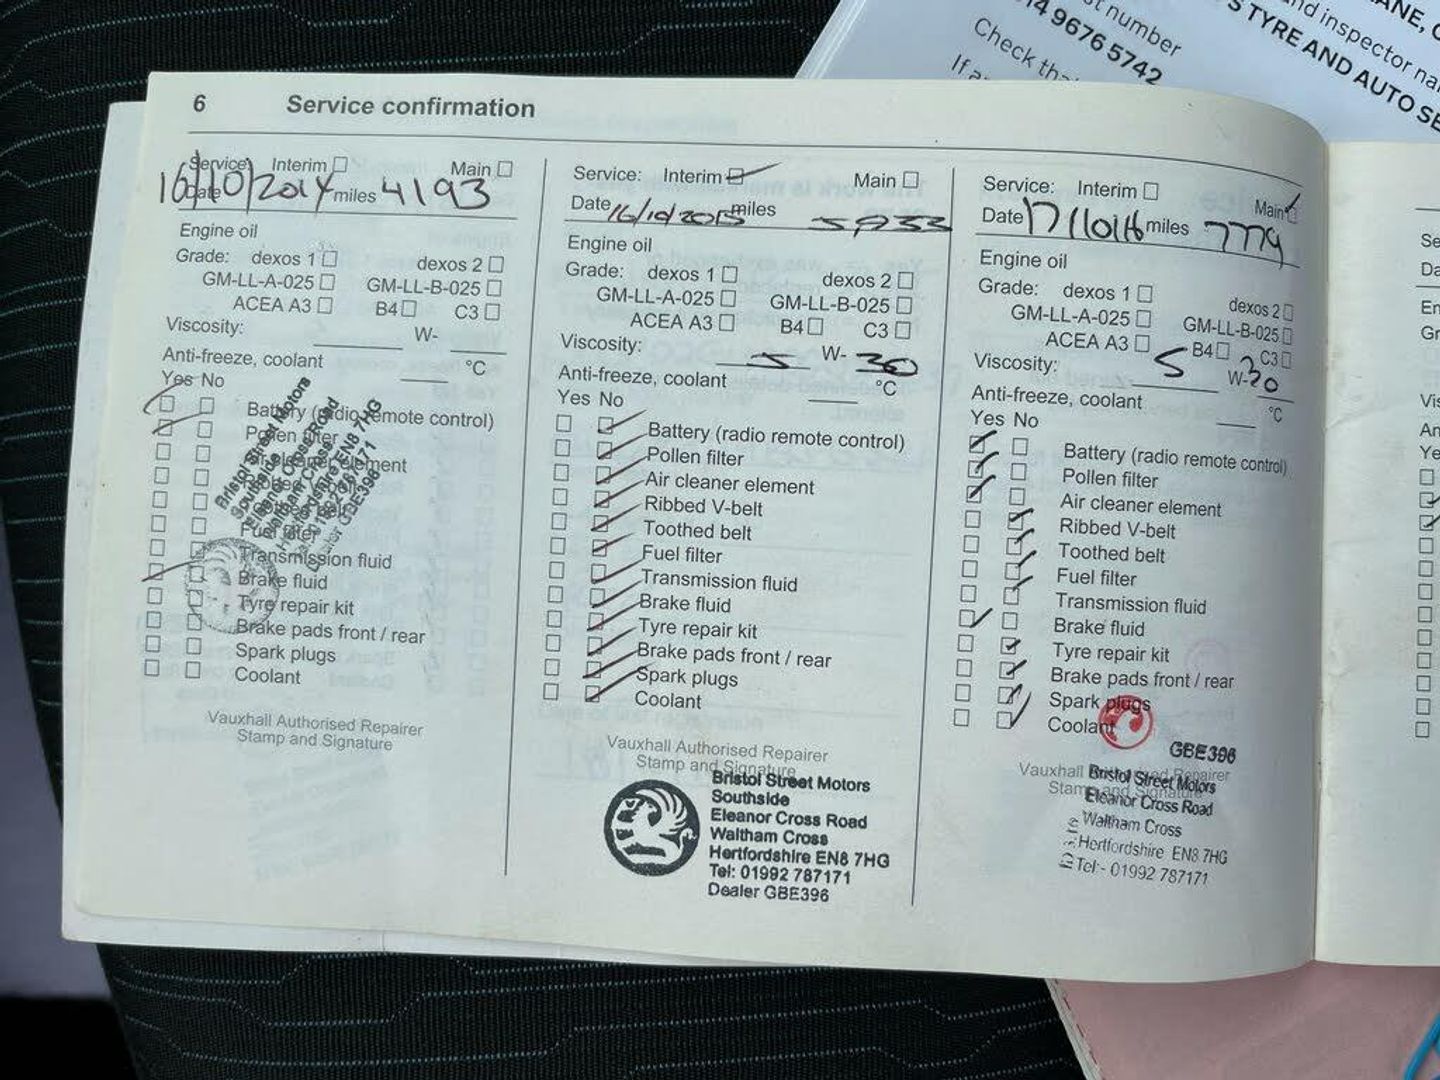 st number
14 9676 5742
Check tha
If a
nd inspector na
S TYRE AND AUTO SE
ANE,
6 Service confirmation
Service: Interim Main
Date 16/10/2014 miles 4193
Engine oil
Grade: dexos 1 dexos 2
GM-LL-A-025 GM-LL-B-025
ACEA A3 B4 C3
Viscosity: W-
Anti-freeze, coolant °C
Yes No
Battery (radio remote control)
Pollen filter
element
Fuel filter
Transmission fluid
Brake fluid
Tyre repair kit
Brake pads front / rear
Spark plugs
Coolant
Bristol Street Motors
Southside
Eleanor Cross Road
Waltham Cross
Hertfordshire EN8 7HG
Tel: 01992 787171
Dealer GBE396
Vauxhall Authorised Repairer
Stamp and Signature
Service: Interim Main
Date 16/10/2015 miles 5933
Engine oil
Grade: dexos 1 dexos 2
GM-LL-A-025 GM-LL-B-025
ACEA A3 B4 C3
Viscosity: 5 W- 30
Anti-freeze, coolant °C
Yes No
Battery (radio remote control)
Pollen filter
Air cleaner element
Ribbed V-belt
Toothed belt
Fuel filter
Transmission fluid
Brake fluid
Tyre repair kit
Brake pads front / rear
Spark plugs
Coolant
Vauxhall Authorised Repairer
Stamp and Signature
Bristol Street Motors
Southside
Eleanor Cross Road
Waltham Cross
Hertfordshire EN8 7HG
Tel: 01992 787171
Dealer GBE396
Service: Interim Main
Date 17/10/16 miles 7779
Engine oil
Grade: dexos 1 dexos 2
GM-LL-A-025 GM-LL-B-025
ACEA A3 B4 C3
Viscosity: 5 W-30
Anti-freeze, coolant °C
Yes No
Battery (radio remote control)
Pollen filter
Air cleaner element
Ribbed V-belt
Toothed belt
Fuel filter
Transmission fluid
Brake fluid
Tyre repair kit
Brake pads front / rear
Spark plugs
Coolant
GBE396
Vauxhall Authorised Repairer
Stamp and Signature
Bristol Street Motors
Eleanor Cross Road
Waltham Cross
Hertfordshire EN8 7HG
Tel:- 01992 787171
Se
Da
En
Gr
Vis
An
Ye